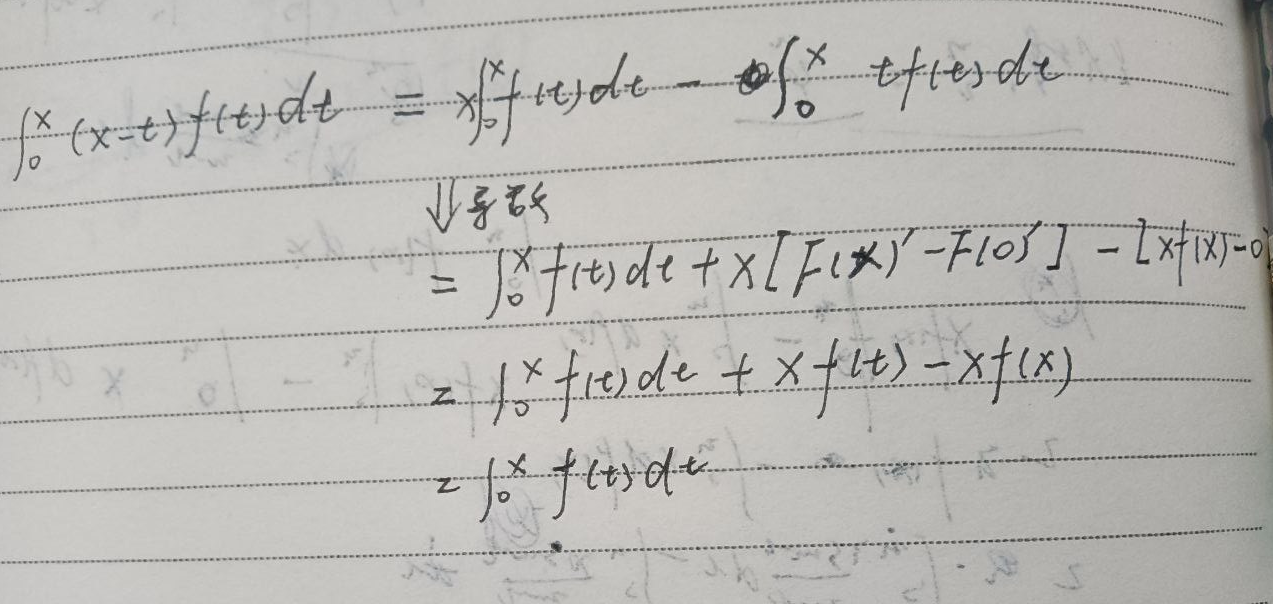 ∫₀ˣ (x-t) f(t) dt = x∫₀ˣ f(t) dt - ∫₀ˣ t f(t) dt
⇓
= ∫₀ˣ f(t) dt + x [F(x)′ - F(0)′] - [xf(x)-0]
= ∫₀ˣ f(t) dt + x f(t) - x f(x)
= ∫₀ˣ f(t) dt